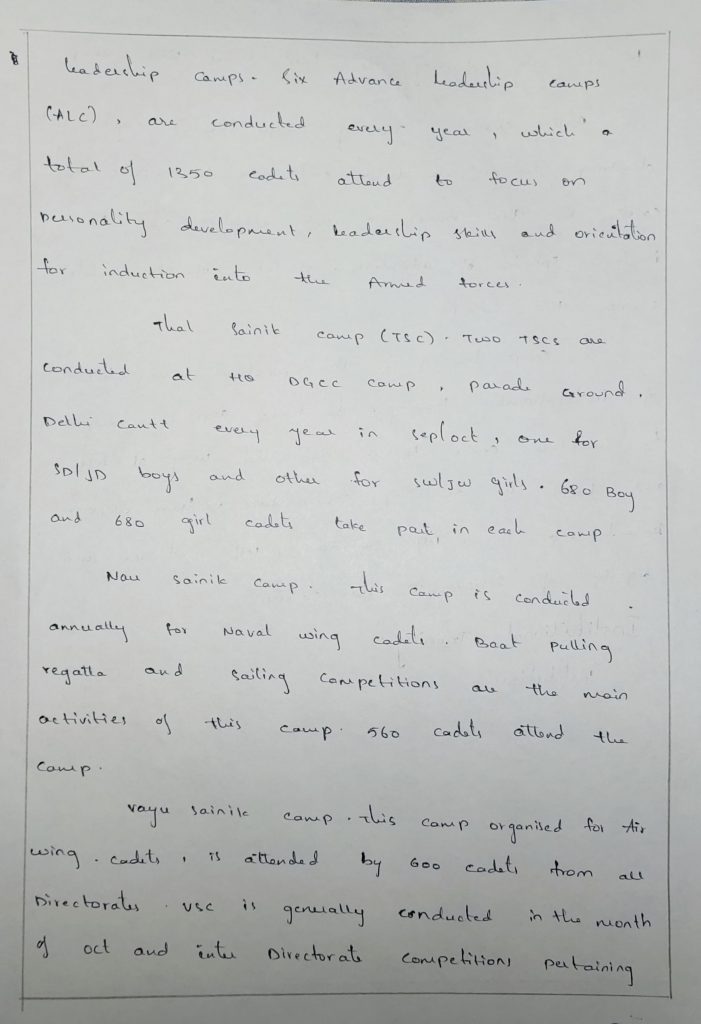 Leadership camps. Six Advance Leadership camps
(ALC), are conducted every year, which a
total of 1350 cadets attend to focus on
personality development, Leadership skills and orientation
for induction into the Armed forces.
Thal Sainik camp (TSC). Two TSCs are
conducted at HQ DGCC camp, parade Ground.
Delhi cantt every year in sep/oct, one for
SD/JD boys and other for SW/JW girls. 680 Boy
and 680 girl cadets take part in each camp
Nau Sainik camp. This camp is conducted.
annually for Naval wing cadets. Boat pulling
regatta and sailing competitions are the main
activities of this camp. 560 cadets attend the
camp.
Vayu sainik camp. This camp organised for Air
wing. cadets, is attended by 600 cadets from all
Directorates. VSC is generally conducted in the month
of oct and inter Directorate competitions pertaining